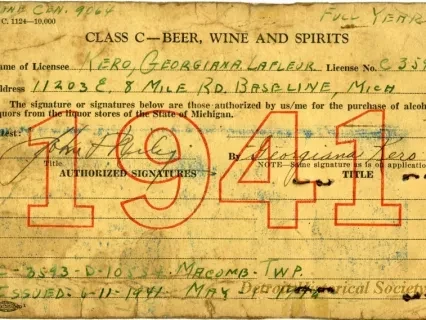 CEN. 9064 FULL YEAR
C. 1124—10,000
CLASS C—BEER, WINE AND SPIRITS
ame of Licensee KERO, GEORGIANA LAFLEUR License No. C 359
ddress 11203 E. 8 MILE RD. BASELINE, MICH
The signature or signatures below are those authorized by us/me for the purchase of alcoh
quors from the liquor stores of the State of Michigan.
est:
John By Georgiana Kero
Title NOTE—Same signature as is on application
AUTHORIZED SIGNATURES TITLE
1941
C-3593-D-1055 MACOMB-TWP.
ISSUED- 6-11-1941 MAY
Detroit Historical Society